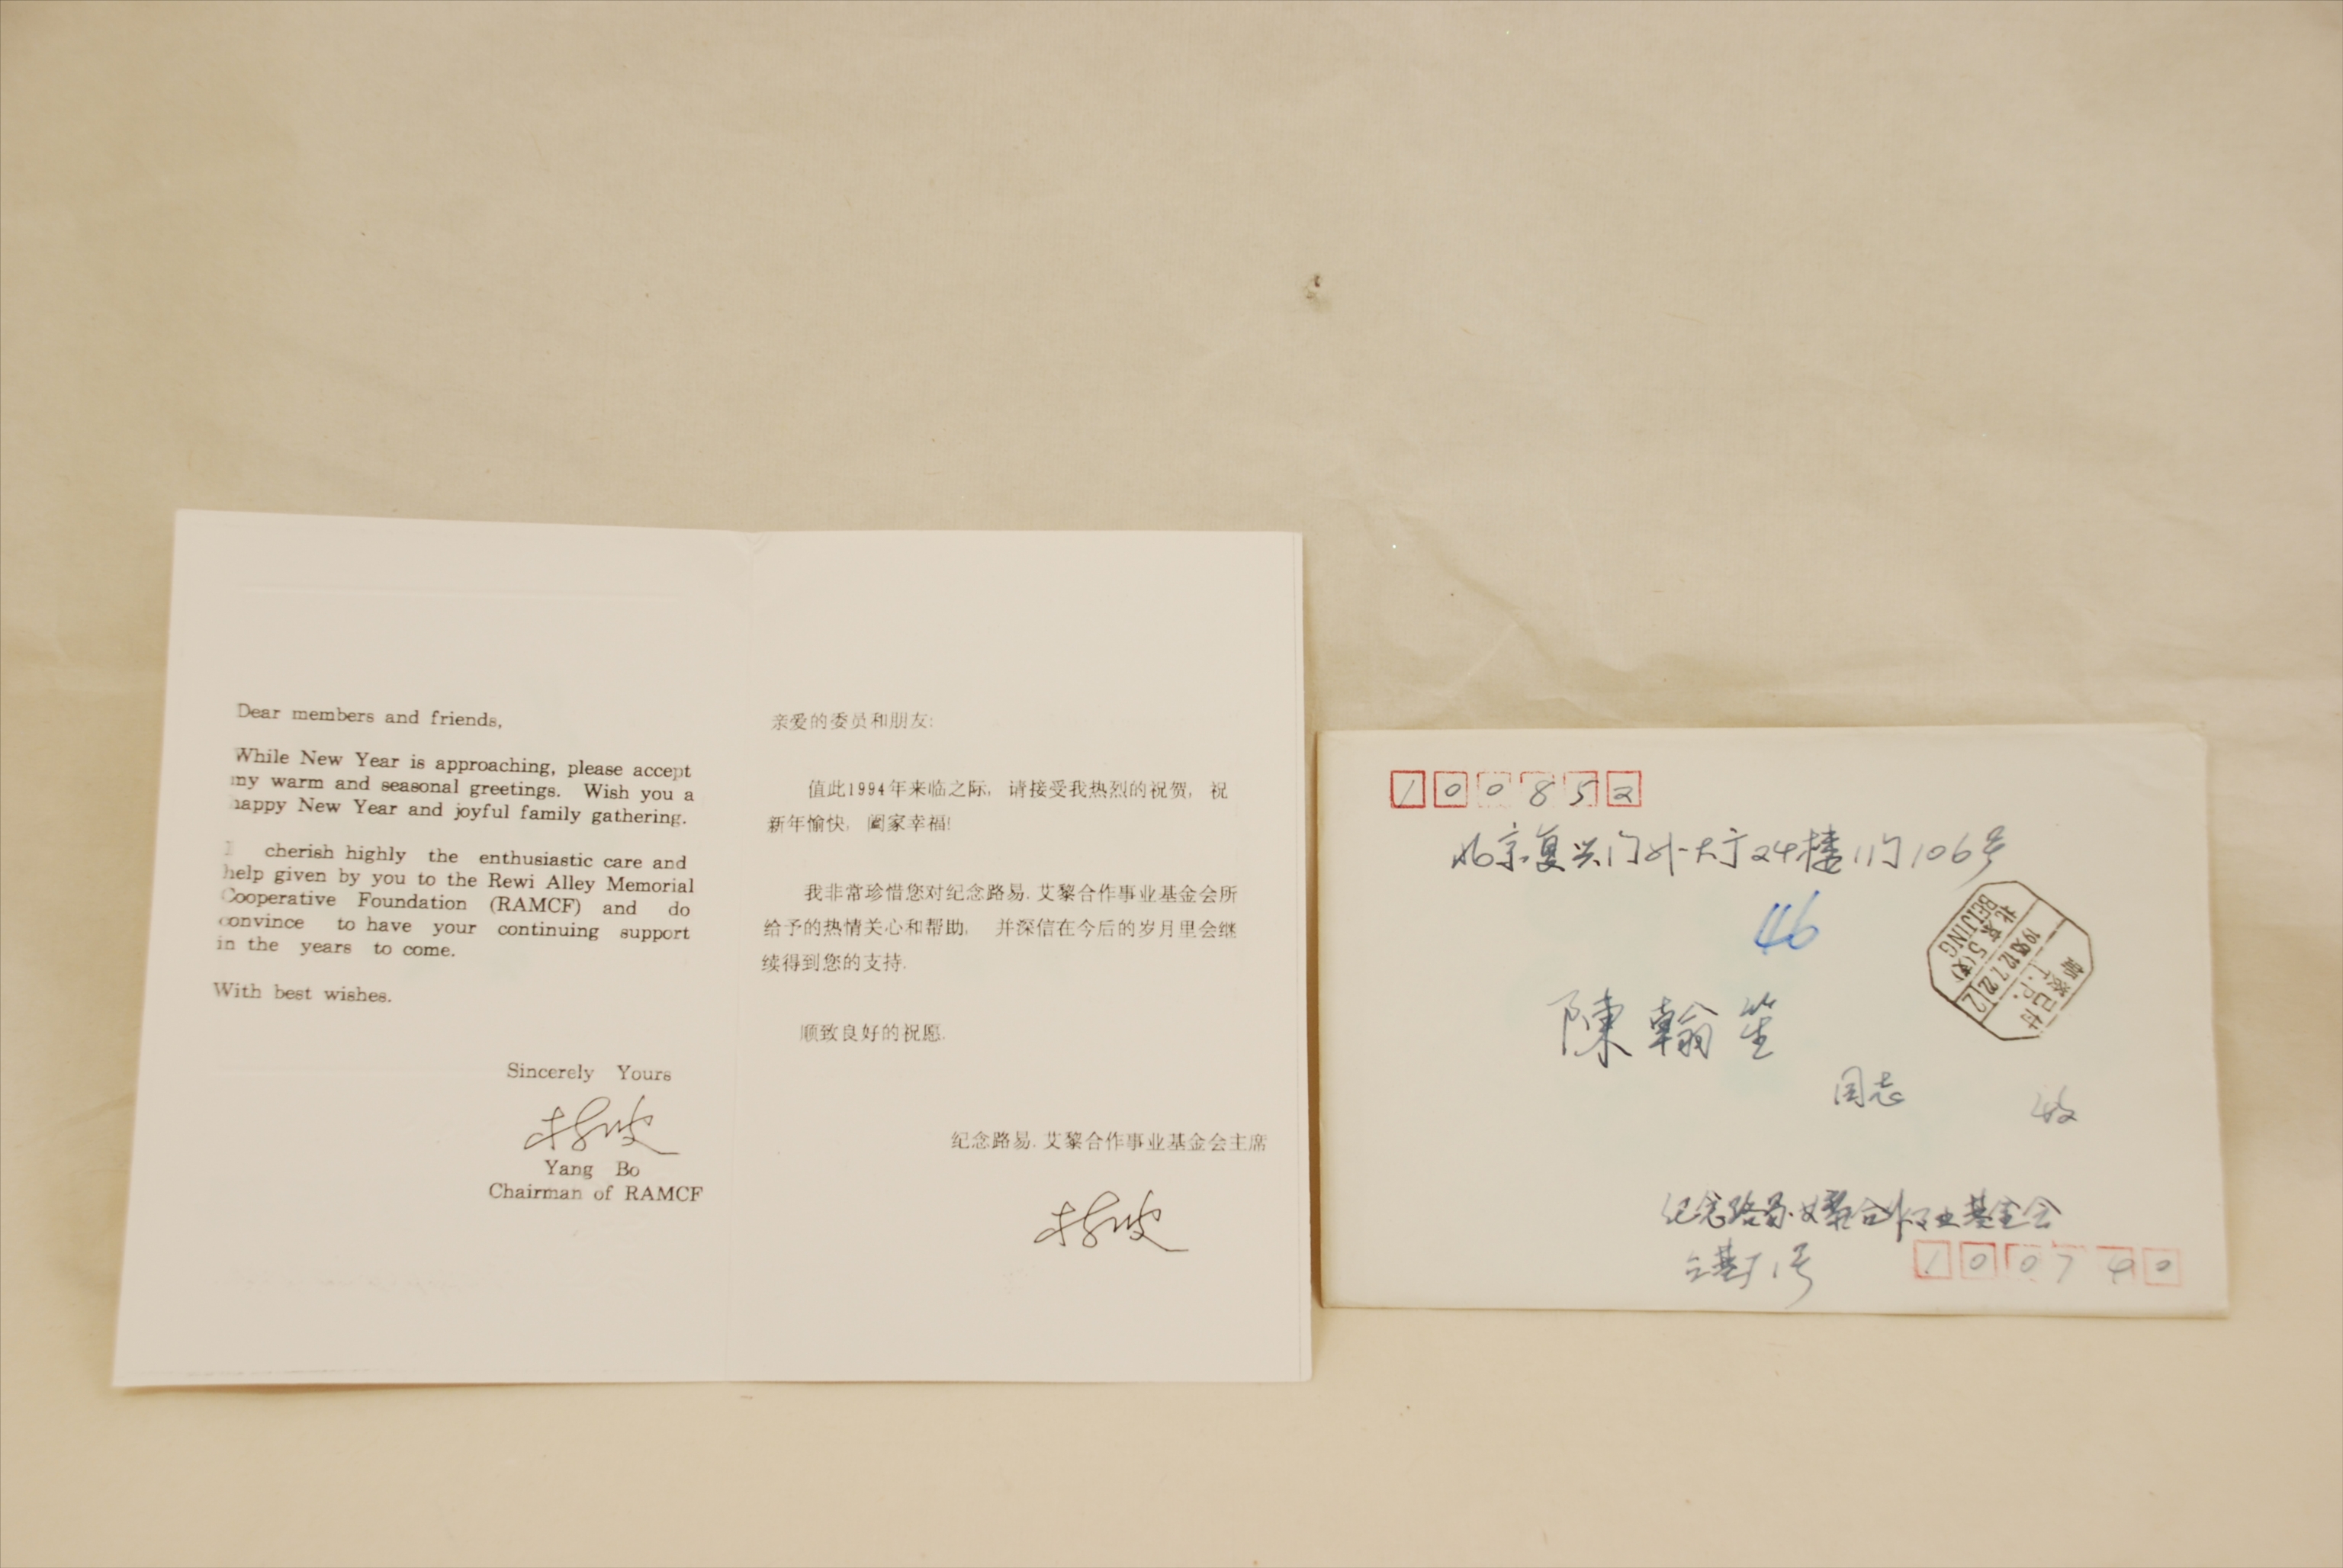 Dear members and friends,
While New Year is approaching, please accept
my warm and seasonal greetings. Wish you a
happy New Year and joyful family gathering.
I cherish highly the enthusiastic care and
help given by you to the Rewi Alley Memorial
Cooperative Foundation (RAMCF) and do
convince to have your continuing support
in the years to come.
With best wishes.
Sincerely Yours
杨波
Yang Bo
Chairman of RAMCF
亲爱的委员和朋友:
值此1994年来临之际, 请接受我热烈的祝贺, 祝
新年愉快, 阖家幸福!
我非常珍惜您对纪念路易.艾黎合作事业基金会所
给予的热情关心和帮助, 并深信在今后的岁月里会继
续得到您的支持.
顺致良好的祝愿.
纪念路易.艾黎合作事业基金会主席
杨波
100852
北京复兴门外大于24楼1门106号
46
陳翰笙
同志
收
北京5(支)
BEIJING
1993.12.7.22
12
T.P.
邮资已付
纪念路易·艾黎合作事业基金会
台基厂1号
100740